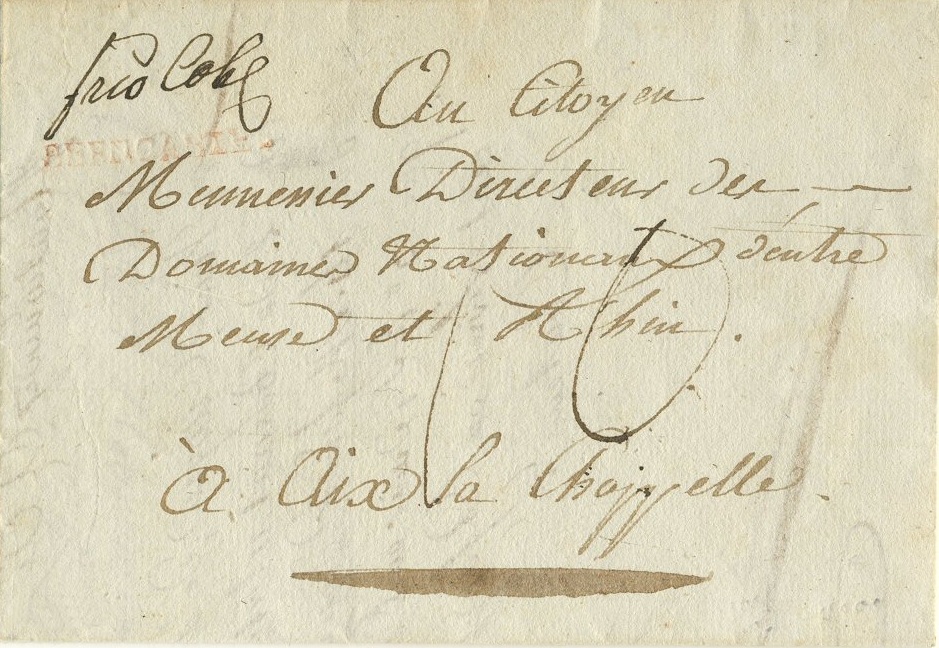 frco Cobl
Au Citoyen
Meumenier Directeur des
Domaines Nationaux d'entre
Meuse et Rhin.
10
à Aix la Chappelle.